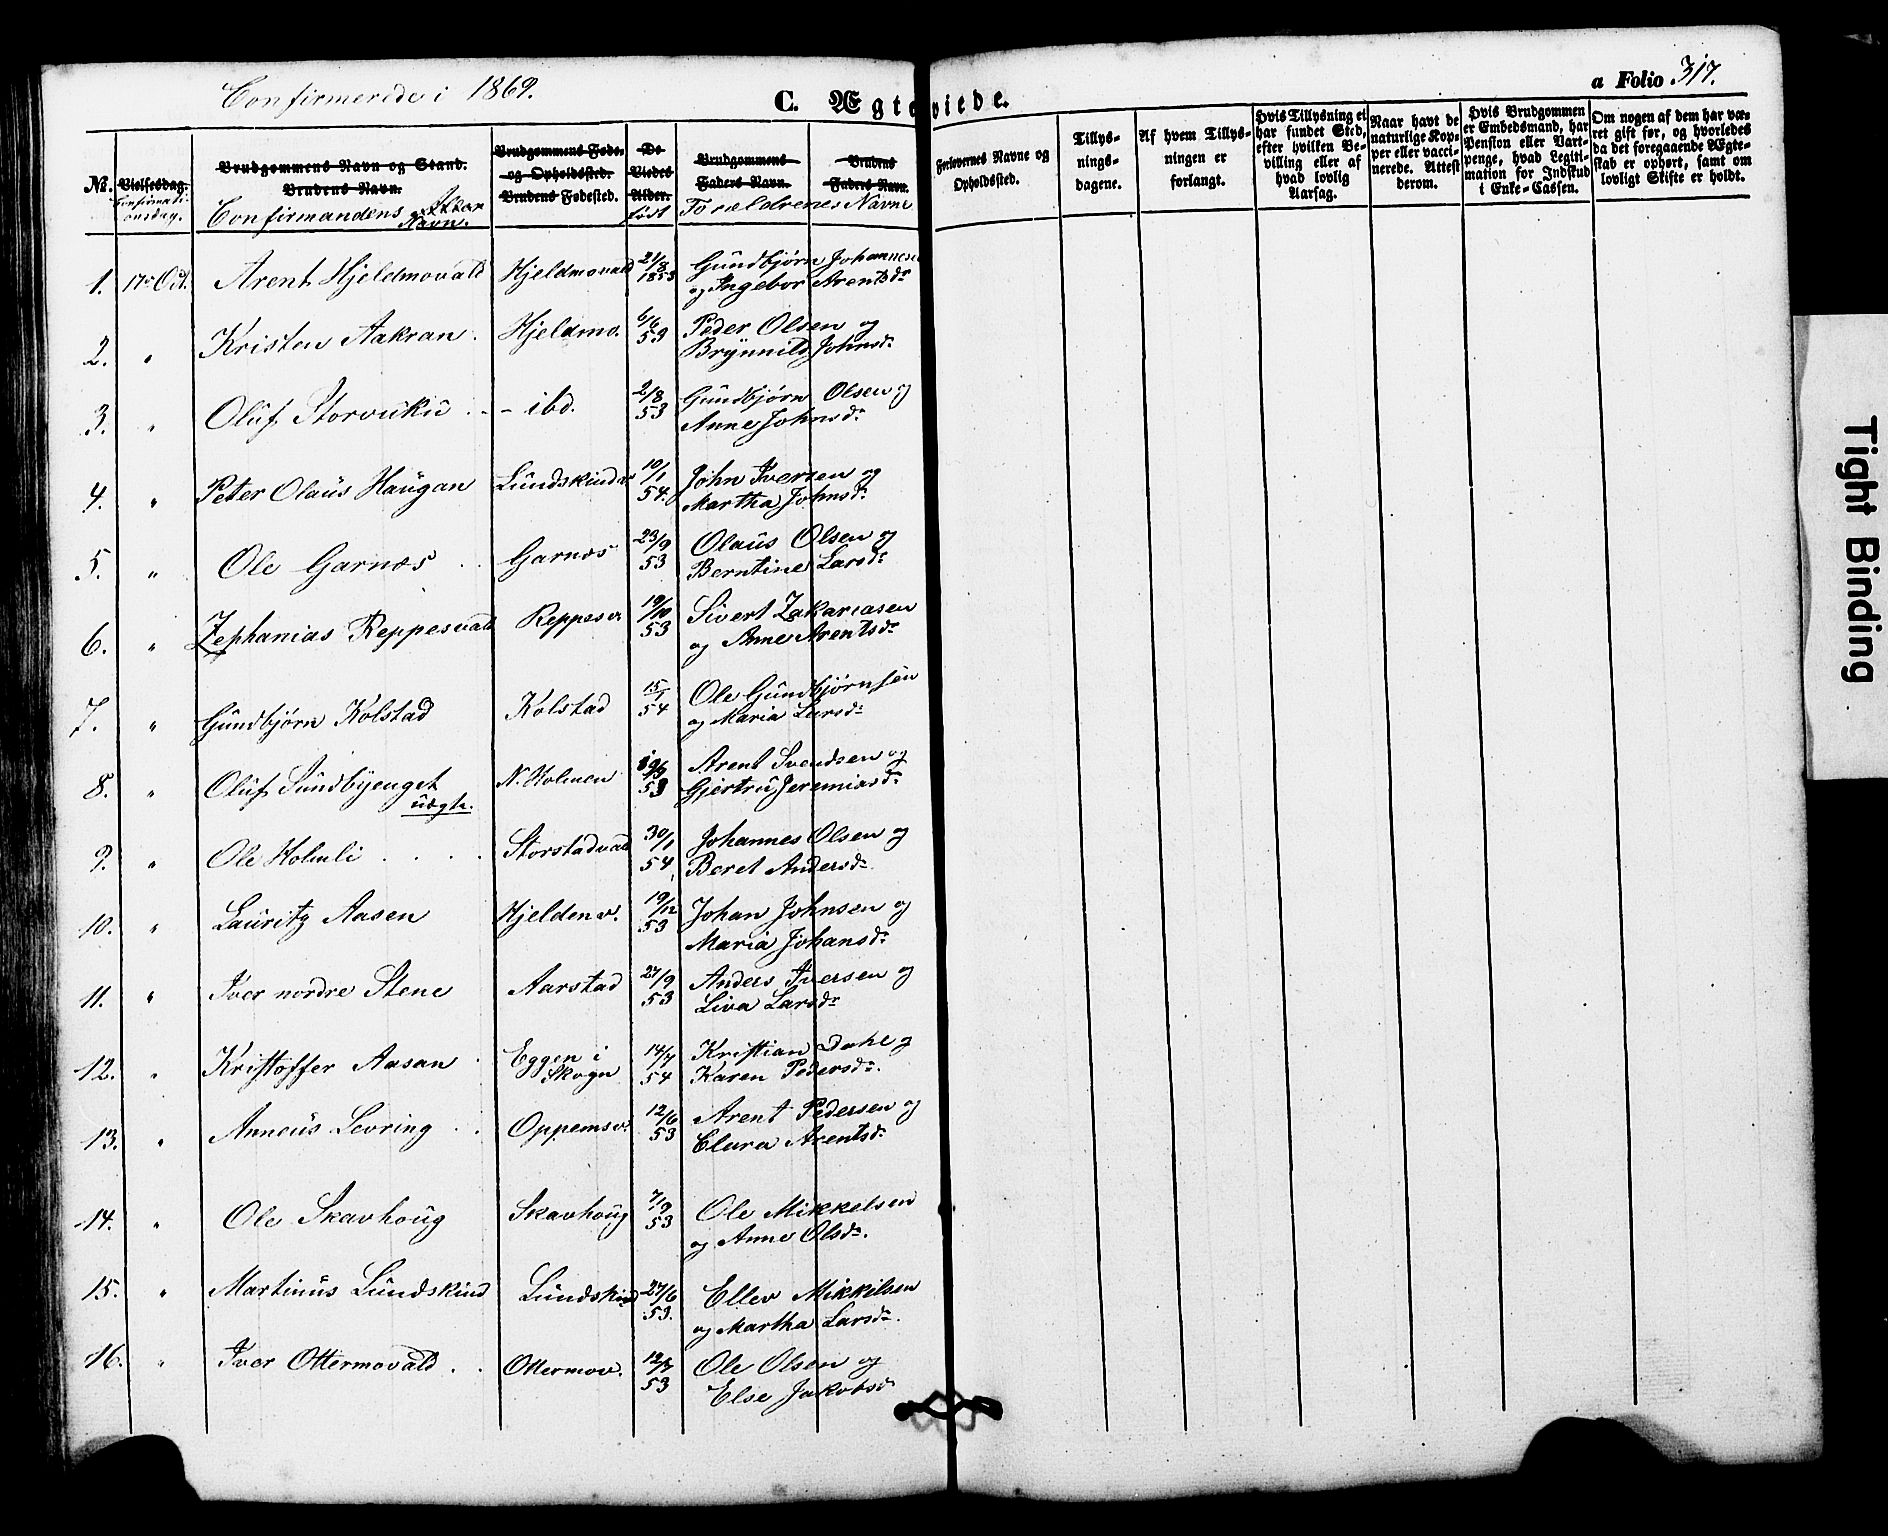 Confirmerede i 1869.
C. Ægteviede.
a Folio 317.
No. Vielsesdag. Confirmationsdag.
Brudgommens Navn og Stand. Brudens Navn.
Confirmandens Navn.
Brudgommens Føde- og Opholdssted. Brudens Fødested.
De Viedes Alder. født
Brudgommens Faders Navn. Brudens Faders Navn.
Forældrenes Navne
Forlovernes Navne og Opholdssted.
Tillysnings-dagene.
Af hvem Tillysningen er forlangt.
Hvis Tillysning ei har fundet Sted, efter hvilken Bevilling eller af hvad lovlig Aarsag.
Naar havt de naturlige Kopper eller vaccinerede. Attest derom.
Hvis Brudgommen er Embedsmand, har Pension eller Vartpenge, hvad Legitimation for Indskud i Enke-Cassen.
Om nogen af dem har været gift før, og hvorledes da det foregaaende Ægteskab er ophørt, samt om lovligt Skifte er holdt.
1. 17de Oct. Arent Hjeldmovald Hjeldmovald 21/8 1853 Gundbjørn Johannesen
og Ingebor Arentsdr
2. " Kristen Aakran. Hjeldmo. 6/6 53 Peder Olsen og
Brynnild Johnsdr
3. " Oluf Storvuku - ibd. 2/8 53 Gundbjørn Olsen og
Anne Johnsdr
4. " Peter Olaus Haugan Lundskinder 10/1 54. John Iversen og
Martha Johnsdr
5. " Ole Garnæs Garnæs 23/9 53 Olaus Olsen og
Berntine Larsdr
6. " Zephanias Reppesvald Reppesv 19/10 53 Sivert Zakariasen
og Anne Arentsdr
7. " Gundbjørn Kolstad Kolstad 15/1 54 Ole Gundbjørnsen
og Maria Larsdr
8. " Oluf Sundbyenget N. Holmen 53 Arent Svendsen og
uægte. Gjertru Jeremiasdr
9. " Ole Holmli Storstadvald 30/1 54 Johannes Olsen og
Beret Andersdr
10. " Lauritz Aasen Hjelden v. 19/12 53 Johan Johnsen og
Maria Johansdr
11. " Iver nordre Stene Aarstad 27/9 53 Anders Iversen og
Liva Larsdr
12. " Kristoffer Aasan Eggen i Skogn 14/7 54 Kristian Dahl og
Karen Pedersdr.
13. " Anneus Levring Oppemsv. 12/6 53 Arent Pedersen og
Clara Arentsdr
14. " Ole Skavhoug Skavhoug 7/9 53 Ole Mikkelsen
og Anne Olsdr.
15. " Martinus Lundskind Lundskind 27/6 53. Ellev Mikkilsen
og Martha Larsdr.
16. " Iver Ottermovald Ottermov. 12/7 53 Ole Olsen og
Else Jakobsd
Tight Binding